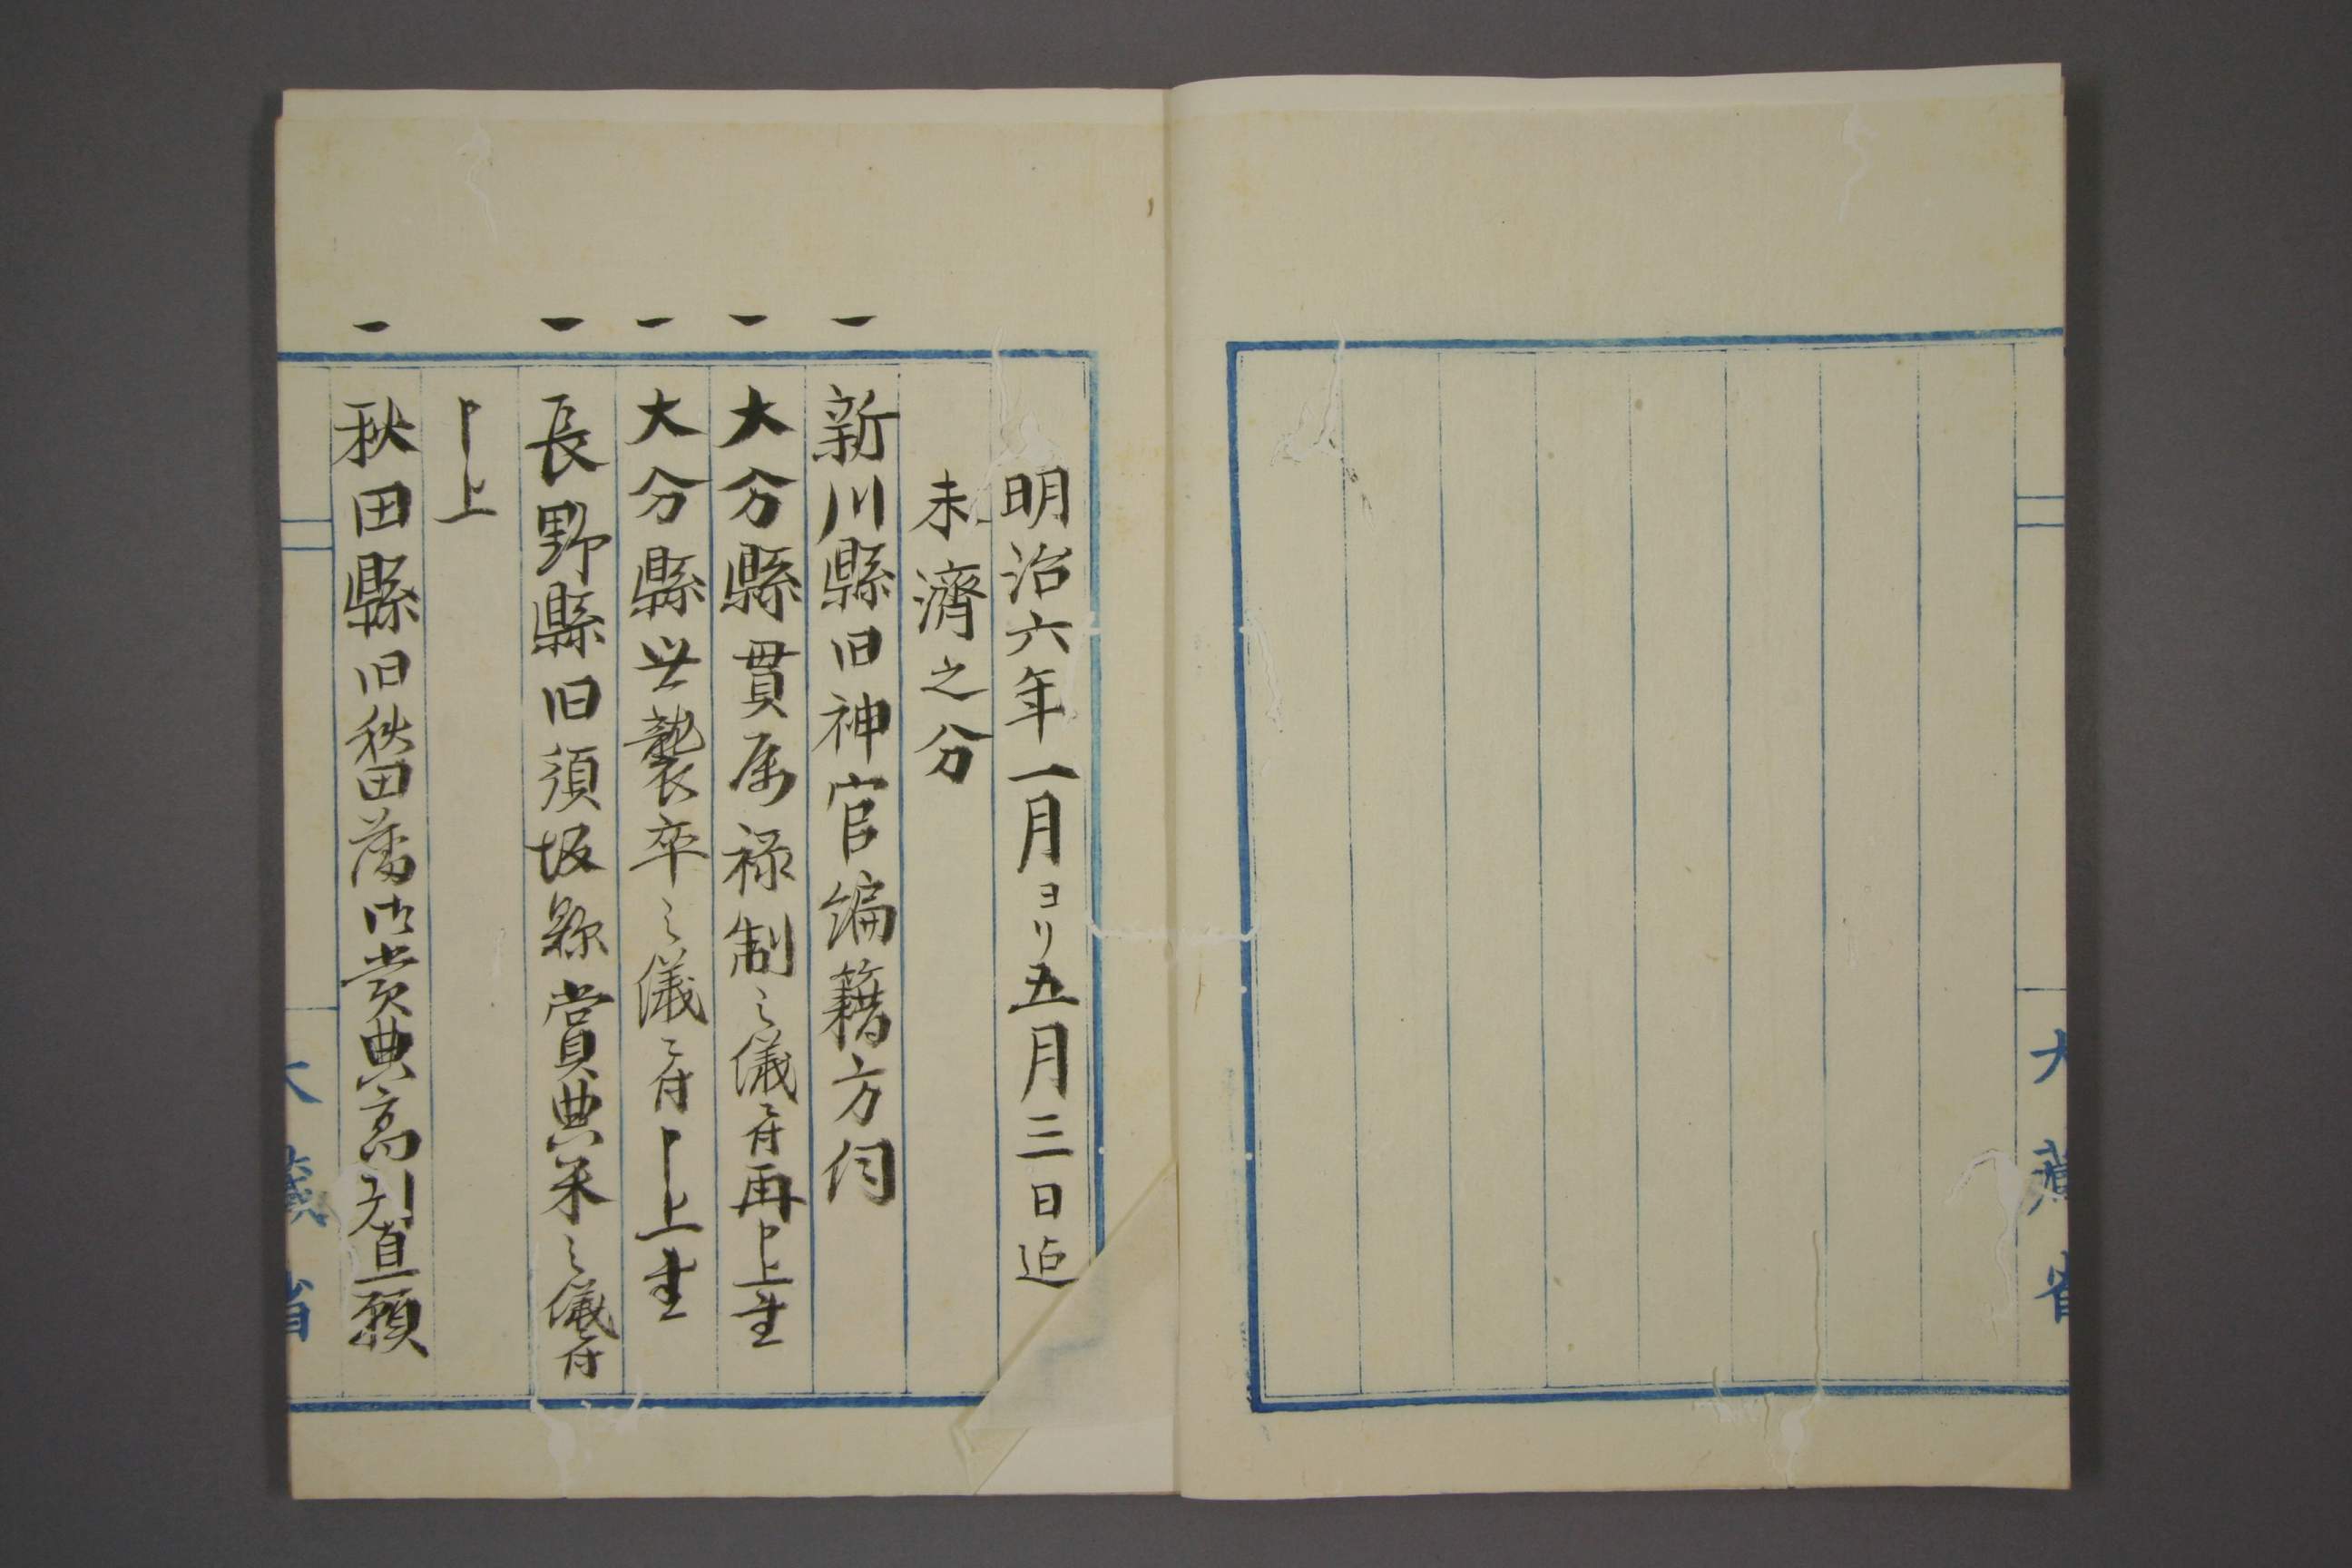 大藏省
明治六年一月ヨリ五月三日迠
未濟之分
一 新川縣旧神官編籍方伺
一 大分縣貫属禄制之儀ニ付再申上書
一 大分縣世襲卒之儀ニ付申上書
一 長野縣旧須坂縣賞典米之儀ニ付
申上
一 秋田縣旧秋田藩士賞典高引直願
大藏省